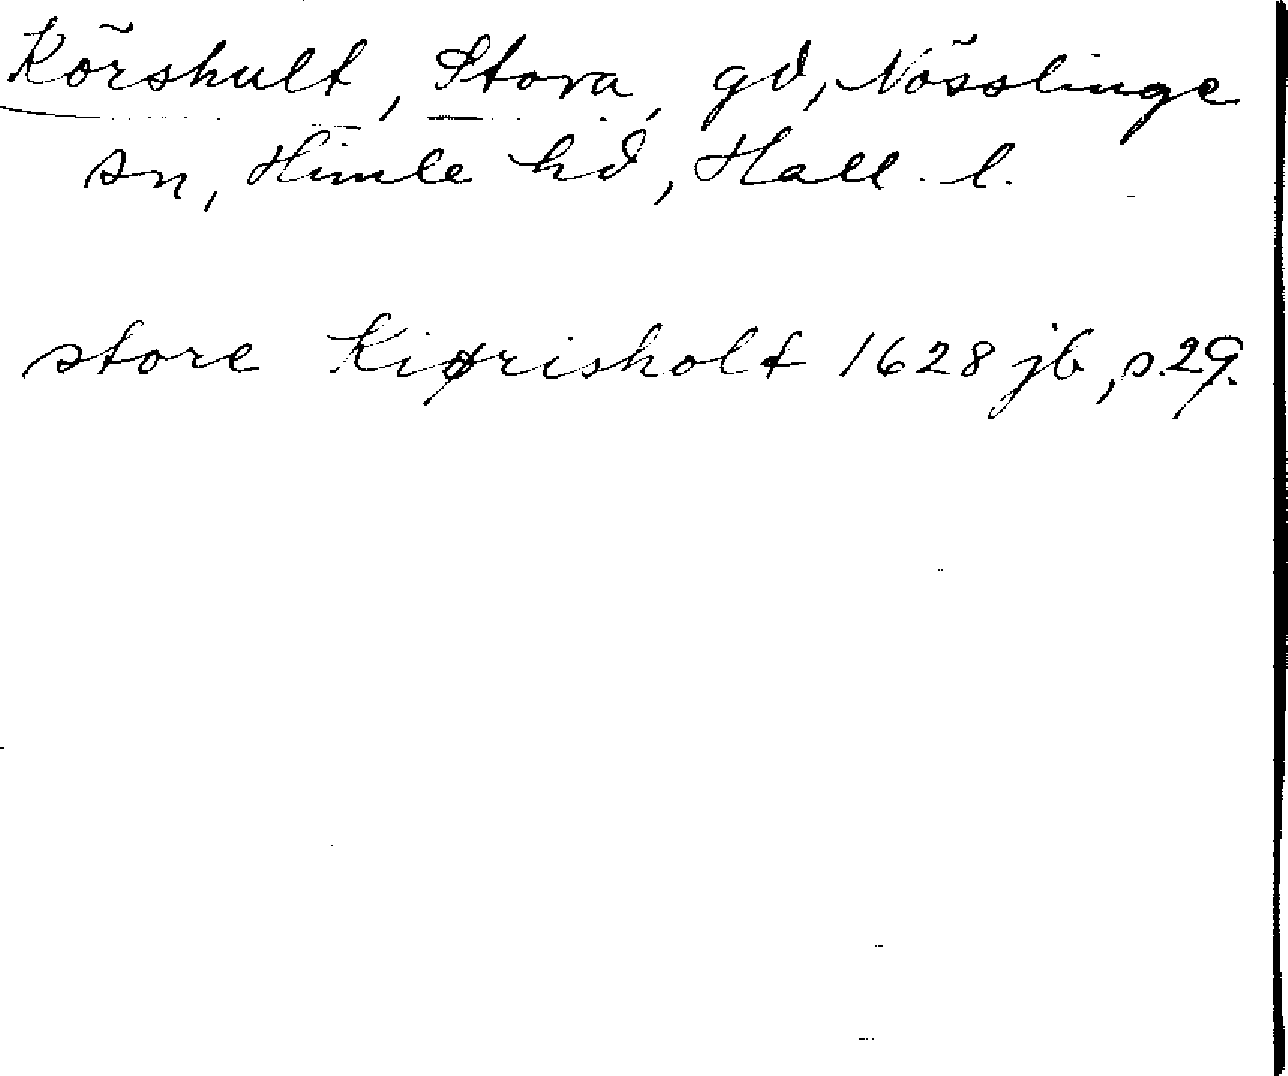 Körshult, Stora, gd, Nösslinge
sn, Himle hd, Hall. l.
store Kiørisholt 1628 jb, s.29.